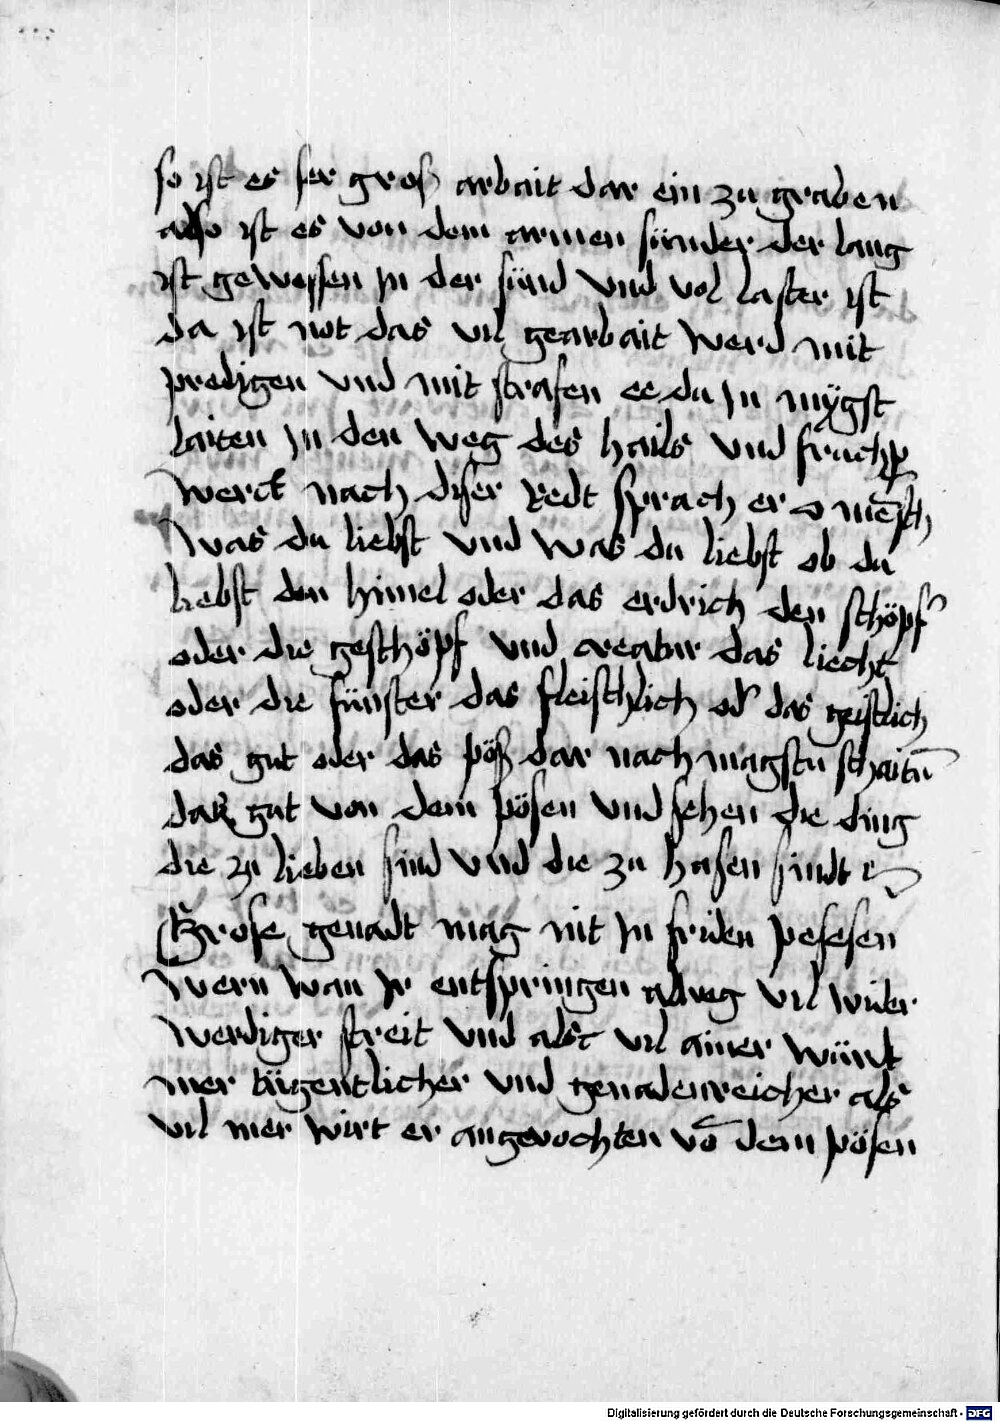 so ist es ser groß arbait dar ein zu graben
also ist es von dem armen sünder der lang
ist gewessen jn der sünd vnd vol laster ist
da ist not das vil gearbait werd mit
predigen vnd mit strafen ee du jn mÿgst
laiten jn den weg des hails vnd
werck nach diser redt sprach er o mēsch
was du liebst vnd was du liebst ob du
liebst den himel oder das erdrich den schöpf̉
oder die geschöpf vnd creatur das liecht
oder die fünster das fleischlich od̉ das geistlich
das gut oder das pöß dar nach magstu schaitn̄
daz gut von dem pösen vnd sehen die ding
die zu lieben sind vnd die zu hasen sindt
Grose genadt mag nit jn friden pesesen
wern wan jr entspringen alweg vil wider
werdiger streit vnd alst vil ainer wündt
mer tügentlicher vnd genadenreicher als
vil mer wirt er angevochten vō dem pösen
Digitalisierung gefördert durch die Deutsche Forschungsgemeinschaft - DFG